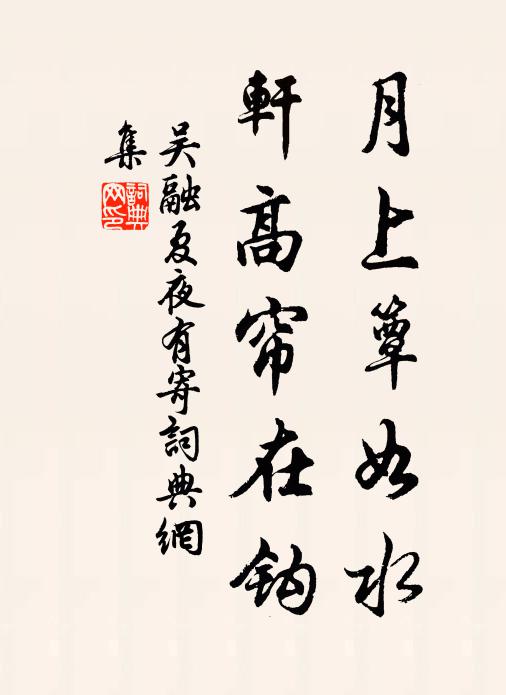 月上簟如水
軒高帘在鈎
吴融夏夜有寄詞典網
集
詞典
网印